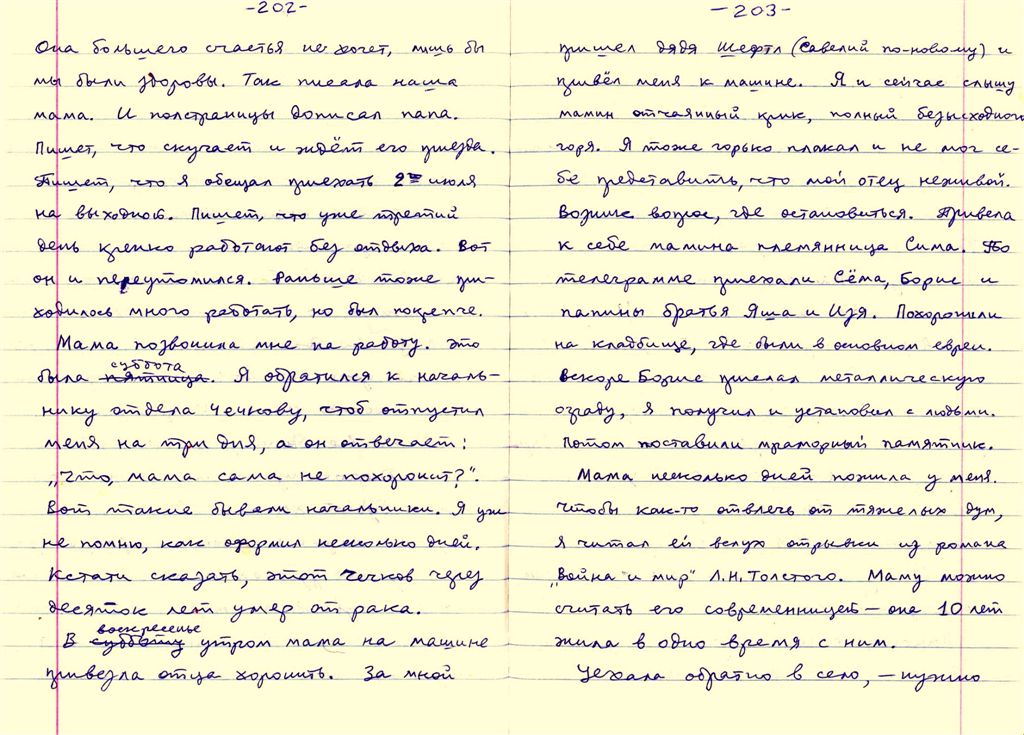 -202-
Она большего счастья не хочет, лишь бы
мы были здоровы. Так писала наша
мама. И полстраницы дописал папа.
Пишет, что скучает и ждёт его приезда.
Пишет, что я обещал приехать 2го июля
на выходной. Пишет, что уже третий
день крепко работают без отдыха. Вот
он и переутомился. Раньше тоже при-
ходилось много работать, но был покрепче.
Мама позвонила мне на работу. Это
суббота
была пятница. Я обратился к началь-
нику отдела Чечкову, чтоб отпустил
меня на три дня, а он отвечает:
„Что, мама сама не похоронит?".
Вот такие бывали начальники. Я уж
не помню, как оформил несколько дней.
Кстати сказать, этот Чечков через
десяток лет умер от рака.
воскресенье
В субботу утром мама на машине
привезла отца хоронить. За мной
-203-
пришел дядя Шефтл (Савелий по-новому) и
привёл меня к машине. Я и сейчас слышу
мамин отчаянный крик, полный безысходного
горя. Я тоже горько плакал и не мог се-
бе представить, что мой отец неживой.
Возник вопрос, где остановиться. Привела
к себе мамина племянница Сима. По
телеграмме приехали Сёма, Борис и
папины братья Яша и Изя. Похоронили
на кладбище, где были в основном евреи.
Вскоре Борис прислал металлическую
ограду, я получил и установил с людьми.
Потом поставили мраморный памятник.
Мама несколько дней пожила у меня.
Чтобы как-то отвлечь от тяжелых дум,
я читал ей вслух отрывки из романа
„Война и мир" Л.Н.Толстого. Маму можно
считать его современницей – она 10 лет
жила в одно время с ним.
Уехала обратно в село, – нужно